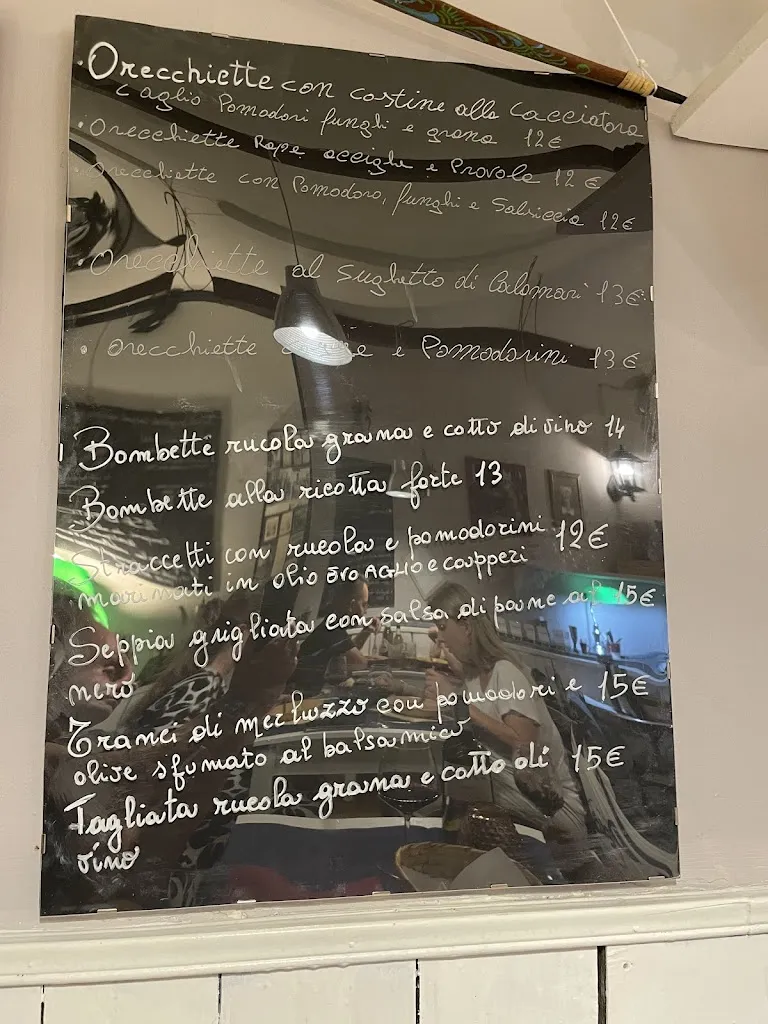 • Orecchiette con costine alla cacciatora
aglio Pomodori funghi e grana 12€
• Orecchiette Rape acciughe e Provola 12€
Orecchiette con Pomodoro, funghi e Salsiccia 12€
• Orecchiette al sughetto di Calamari 13€
• Orecchiette e Pomodorini 13€
Bombette rucola grana e cotto di vino 14
Bombette alla ricotta forte 13
Straccetti con rucola e pomodorini 12€
marinati in olio EVO AGLIO e capperi
Seppia grigliata con salsa di pane al 15€
nero
Tranci di merluzzo con pomodori e 15€
olive sfumato al balsamico
Tagliata rucola grana e cotto di 15€
vino